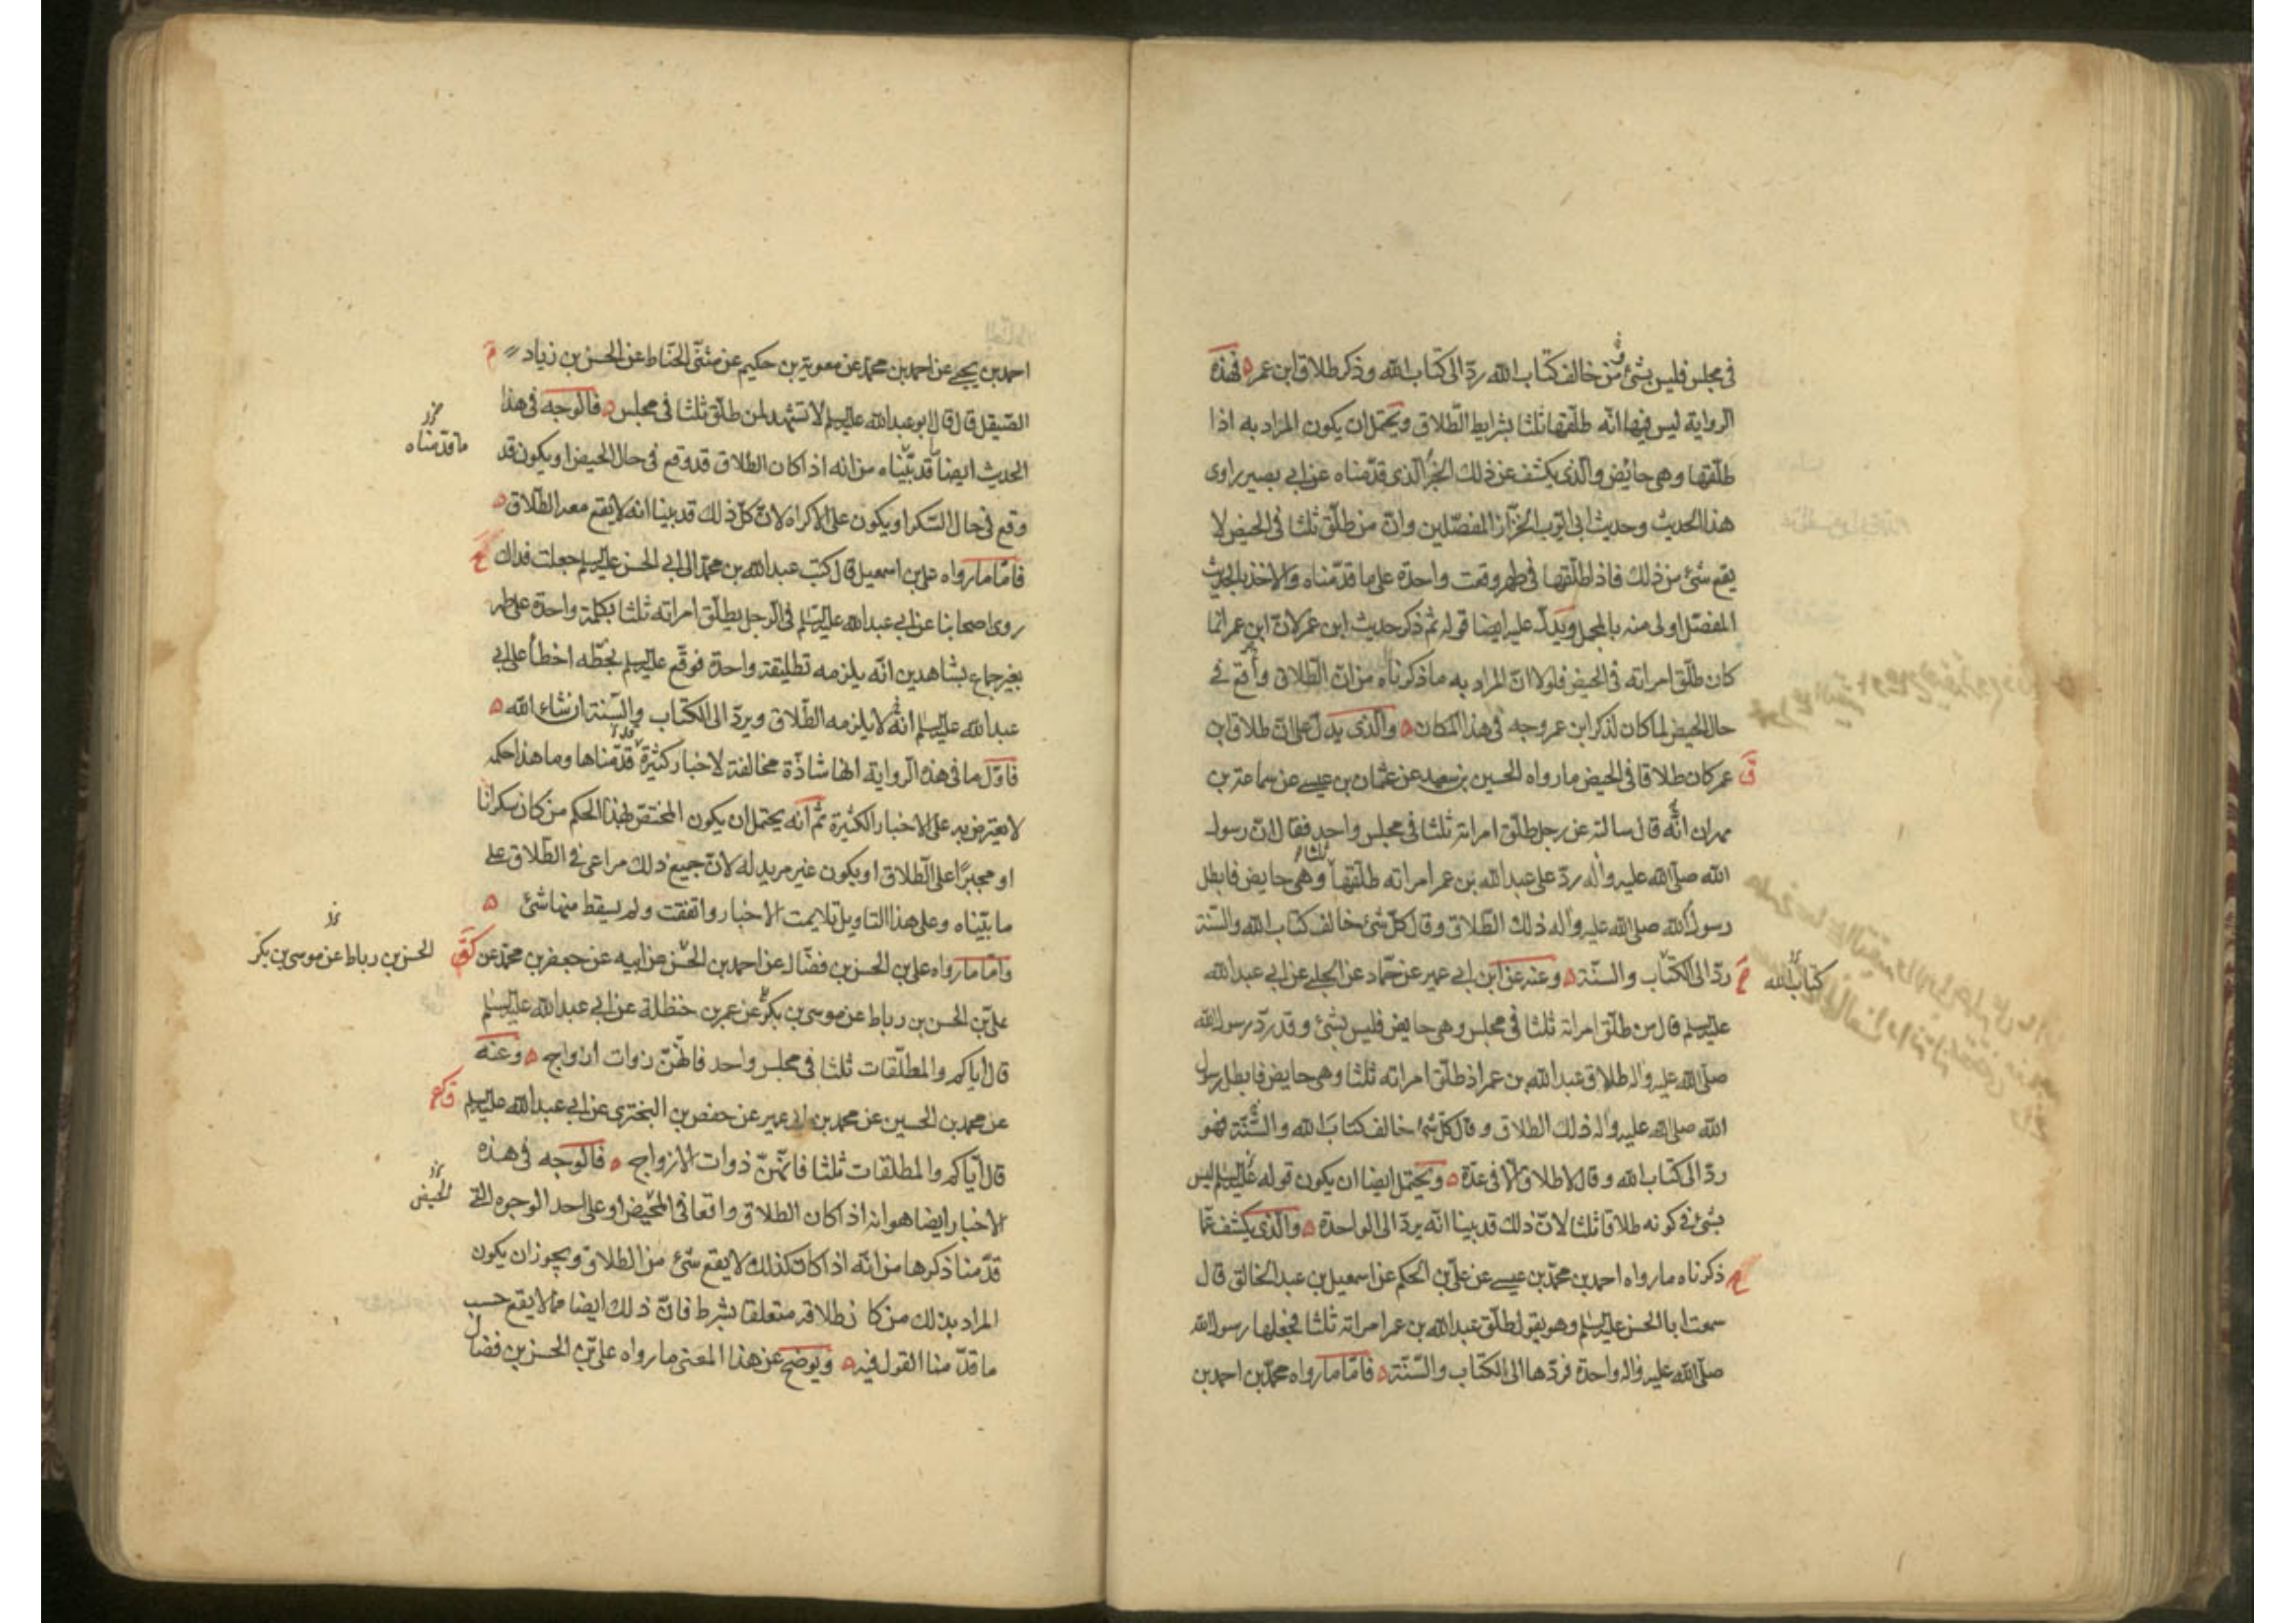 في مجلس فليس بشئ من خالف كتاب الله ردّ الى كتاب الله وذكر طلاق ابن عمر فهذه
الرواية ليس فيها انّه طلّقها ثلثا بشرايط الطّلاق ويحتمل ان يكون المراد به اذا
طلّقها وهي حائض والّذي يكشف عن ذلك الخبر الّذي قدّمناه عن ابي بصير راوى
هذا الحديث وحديث ابي ايّوب الخزّاز المفصّلين وانّ من طلّق ثلثا في الحيض لا
يقع شئ من ذلك فاذا طلّقها في طهر وقعت واحدة على ما قدّمناه والاخذ بالحديث
المفصّل اولى منه بالمجمل ويدلّ عليه ايضا قوله ثم ذكر حديث ابن عمر لانّ ابن عمر انّما
كان طلّق امراته في الحيض فلولا انّ المراد به ما ذكرناه من انّ الطّلاق واقع في
حال الحيض لما كان لذكر ابن عمر وجه في هذا المكان والّذي يدلّ على انّ طلاق ابن
عمر كان طلاقا في الحيض ما رواه الحسين بن سعيد عن عثمان بن عيسى عن سماعة بن
مهران انّه قال سالته عن رجل طلّق امراته ثلثا في مجلس واحد فقال انّ رسول
الله صلّى الله عليه واله ردّ على عبدالله بن عمر امراته طلّقها ثلثا وهي حايض فابطل
رسول الله صلى الله عليه واله ذلك الطّلاق وقال كلّ شئ خالف كتاب الله والسّنة
ردّ الى الكتاب والسّنّة وعنه عن ابن ابي عمير عن حمّاد عن الحلبي عن ابي عبدالله
كتاب الله
عليه السلم قال من طلّق امراته ثلثا في مجلس وهي حايض فليس بشئ وقد ردّ رسول الله
صلّى الله عليه واله طلاق عبدالله بن عمر اذ طلّق امراته ثلثا وهي حايض فابطل رسول
الله صلى الله عليه واله ذلك الطلاق وقال كلّ شئ خالف كتاب الله والسّنّة فهو
ردّ الى كتاب الله وقال لا طلاق الّا في عدّة ويحتمل ايضا ان يكون قوله عليه السلم ليس
بشئ في كونه طلاقا ثلثا لانّ ذلك قد بينا انّه يردّ الى الواحدة والّذي يكشف عمّا
ذكرناه ما رواه احمد بن محمّد بن عيسى عن عليّ بن الحكم عن اسمعيل بن عبد الخالق قال
سمعت ابا الحسن عليه السلم وهو يقول طلّق عبدالله بن عمر امراته ثلثا فجعلها رسول الله
صلّى الله عليه واله واحدة فردّها الى الكتاب والسّنّة فامّا ما رواه محمّد بن احمد بن
احمد بن يحيى عن احمد بن محمّد عن معوية بن حكيم عن مثنّى الحنّاط عن الحسن بن زياد
الصّيقل قال قال ابو عبدالله عليه السلم لا تشهد لمن طلّق ثلثا في مجلس فالوجه في هذا
الحديث ايضا ما قد بيّناه من انه اذا كان الطلاق قد وقع في حال الحيض او يكون قد
ما قدّمناه
وقع في حال السّكر او يكون على الاكراه لانّ كلّ ذلك قد بينا انه لا يقع معه الطّلاق
فامّا ما رواه علي بن اسمعيل قال كتب عبدالله بن محمّد الى ابي الحسن عليه السلم جعلت فداك
روى اصحابنا عن ابي عبدالله عليه السلم في الرجل يطلّق امراته ثلثا بكلمة واحدة على طهر
بغير جماع بشاهدين انّه يلزمه تطليقة واحدة فوقّع عليه السلم بخطّه اخطأ على ابي
عبدالله عليه السلم انّه لا يلزمه الطّلاق ويردّ الى الكتاب والسّنة ان شاء الله
فاوّل ما في هذه الرواية انها شاذّة مخالفة لاخبار كثيرة قدّمناها وما هذا حكمه
لا يعترض به على الاخبار الكثيرة ثمّ انّه يحتمل ان يكون المختصّ بهذا الحكم من كان سكرانا
او مجبرًا على الطّلاق او يكون غير مريد له لانّ جميع ذلك مراعى في الطّلاق على
ما بيّناه وعلى هذا التاويل تلايمت الاخبار واتفقت ولم يسقط منها شئ
وامّا ما رواه علي بن الحسن بن فضّال عن احمد بن الحسن عن ابيه عن جعفر بن محمّد عن
الحسن بن رباط عن موسى بن بكر
عليّ بن الحسن بن رباط عن موسى بن بكر عن عمر بن حنظلة عن ابي عبدالله عليه السلم
قال اياكم والمطلّقات ثلثا في مجلس واحد فانّهنّ ذوات ازواج وعنه
عن محمد بن الحسين عن محمد بن ابي عمير عن حفص بن البختري عن ابي عبدالله عليه السلم
قال ايّاكم والمطلقات ثلثا فانّهنّ ذوات الازواج فالوجه في هذه
الاخبار ايضا هو انه اذا كان الطلاق واقعا في المحيض او على احد الوجوه التي
الحيض
قدّمنا ذكرها من انّه اذا كان كذلك لا يقع شئ من الطلاق ويجوز ان يكون
المراد بذلك من كان طلاقه متعلقا بشرط فانّ ذلك ايضا ممّا لا يقع حسب
ما قدّمنا القول فيه ويوضح عن هذا المعنى ما رواه عليّ بن الحسن بن فضال